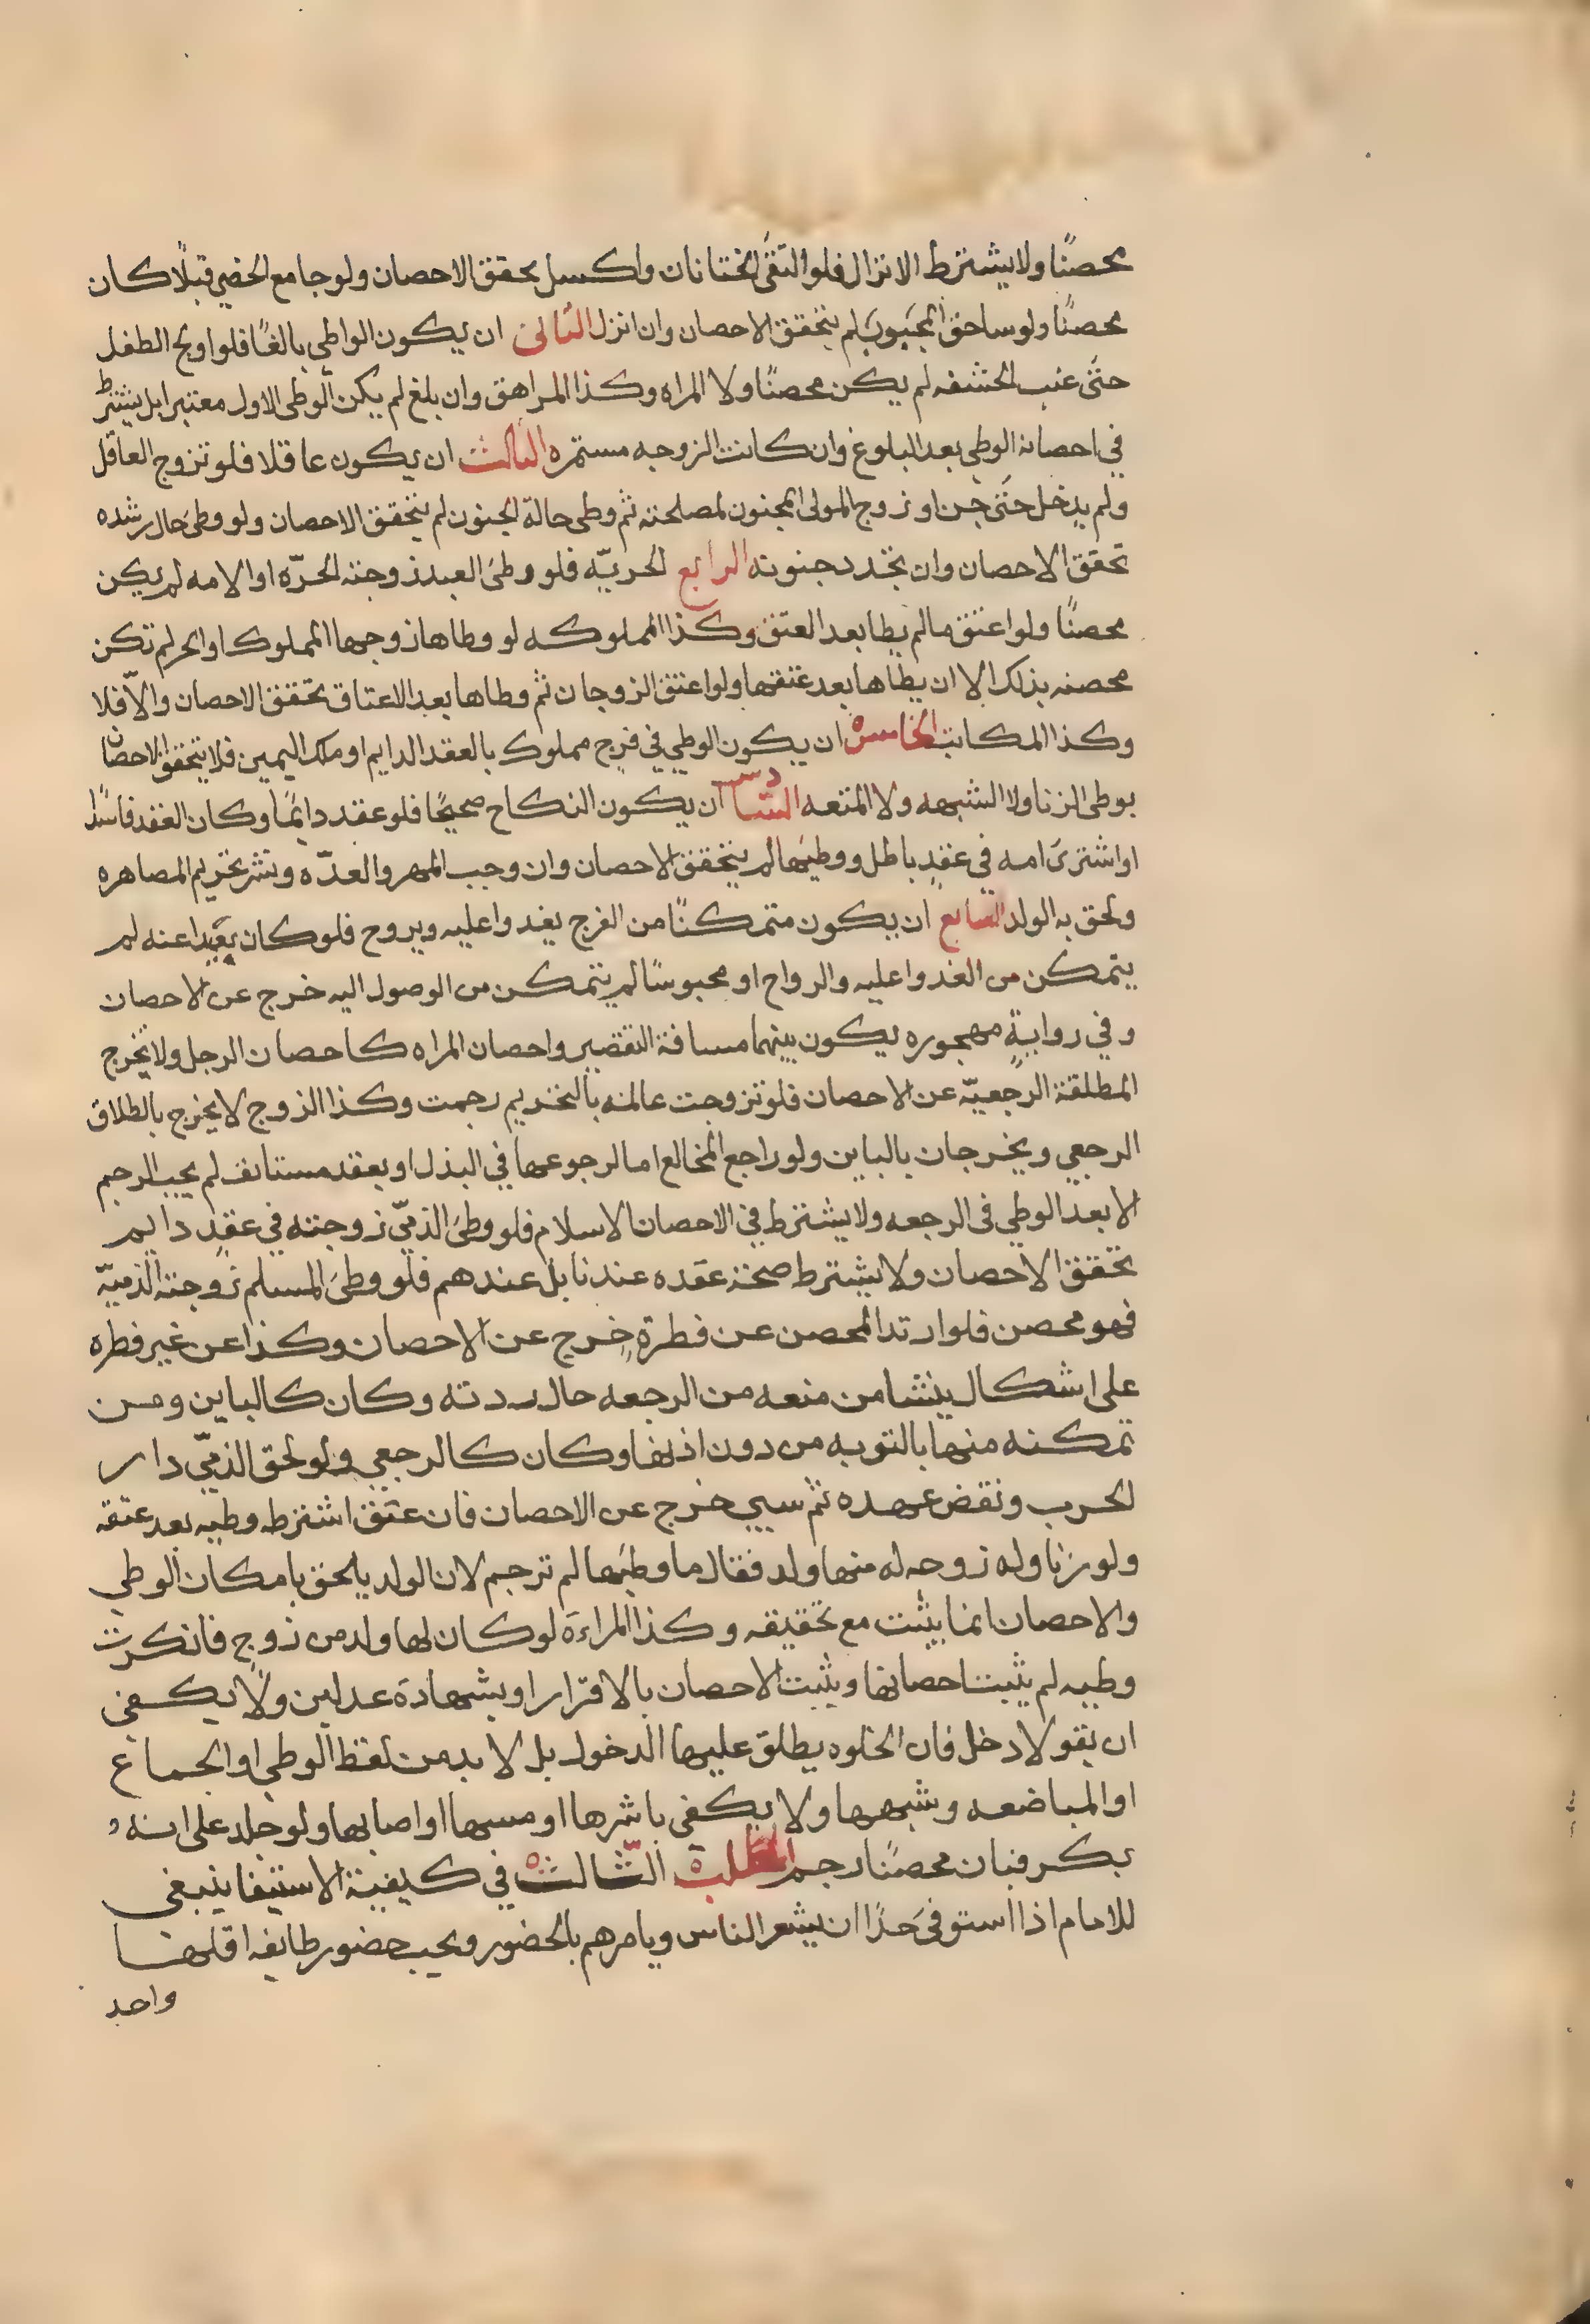 محصنًا ولا يشترط الانزال فلو التقى الختانان واكسل تحقق الاحصان ولو جامع الخصي قبلًا كان
محصنًا ولو ساحق المجبوب لم يتحقق الاحصان وان انزل الثانى ان يكون الواطي بالغًا فلو اولج الطفل
حتى غيب الحشفه لم يكن محصنًا ولا المراه وكذا المراهق وان بلغ لم يكن الوطى الاول معتبرا بل يشترط
في احصانه الوطى بعد البلوغ وان كانت الزوجيه مستمره الثالث ان يكون عاقلا فلو تزوج العاقل
ولم يدخل حتى جن او زوج المولى المجنون لمصلحته ثم وطى حالة الجنون لم يتحقق الاحصان ولو وطى حال رشده
تحقق الاحصان وان تجدد جنونه الرابع الحريّه فلو وطئ العبد زوجته الحرّه او الامه لم يكن
محصنًا ولو اعتق ما لم يطا بعد العتق وكذا المملوكه لو وطاها زوجها المملوك او الحر لم تكن
محصنه بذلك الا ان يطاها بعد عتقها ولو اعتق الزوجان ثم وطاها بعد الاعتاق تحقق الاحصان والّا فلا
وكذا المكاتب الخامس ان يكون الوطي في فرج مملوك بالعقد الدايم او ملك اليمين فلا يتحقق الاحصان
بوطى الزنا ولا الشبهه ولا المتعه السادس ان يكون النكاح صحيحًا فلو عقد دائمًا وكان العقد فاسدًا
او اشترى امه في عقدٍ باطل ووطيها لم يتحقق الاحصان وان وجب المهر والعدّه ونشر تحريم المصاهره
ولحق به الولد السابع ان يكون متمكنًا من الفرج يغدوا عليه ويروح فلو كان بعيدا عنه لم
يتمكن من الغدوا عليه والرواح او محبوسًا لم يتمكن من الوصول اليه خرج عن الاحصان
وفي روايةٍ مهجوره يكون بينهما مسافة التقصير واحصان المراه كاحصان الرجل ولا تخرج
المطلقة الرجعيّه عن الاحصان فلو تزوجت عالمه بالتحريم رجمت وكذا الزوج لا يخرج بالطلاق
الرجعي ويخرجان بالباين ولو راجع المخالع اما لرجوعها في البذل او بعقد مستانف لم يجب الرجم
الا بعد الوطي فى الرجعه ولا يشترط في الاحصان الاسلام فلو وطئ الذميّ زوجته في عقدٍ دايم
تحقق الاحصان ولا يشترط صحة عقده عندنا بل عندهم فلو وطئ المسلم زوجته الذميّه
فهو محصن فلو ارتد المحصن عن فطرةٍ خرج عن الاحصان وكذا عن غير فطره
على اشكال ينشا من منعه من الرجعه حال ردته وكان كالباين ومن
تمكنه منها بالتوبه من دون اذنها وكان كالرجعي ولو لحق الذميّ دار
الحرب ونقض عهده ثم سبي خرج عن الاحصان فان عتق اشترط وطيه بعد عتقه
ولو زنا وله زوجه له منها ولد فقال ما وطيتها لم ترجم لان الولد يلحق بامكان الوطي
والاحصان انما يثبت مع تحقيقه وكذا المراءة لو كان لها ولد من زوج فانكرت
وطيه لم يثبت احصانها ويثبت الاحصان بالاقرار او بشهادة عدلين ولا يكفى
ان يقولا دخل فان الخلوه يطلق عليها الدخول بل لا بد من لفظ الوطي او الجماع
او المباضعه وشبهها ولا يكفى باشرها او مسها او اصابها ولو جلد على انه
بكر فبان محصنًا رجم المطلب الثالث في كيفية الاستيفا ينبغى
للامام اذا استوفى حدًا ان يشعر الناس ويامرهم بالحضور ويجب حضور طايفه اقلها
واحد